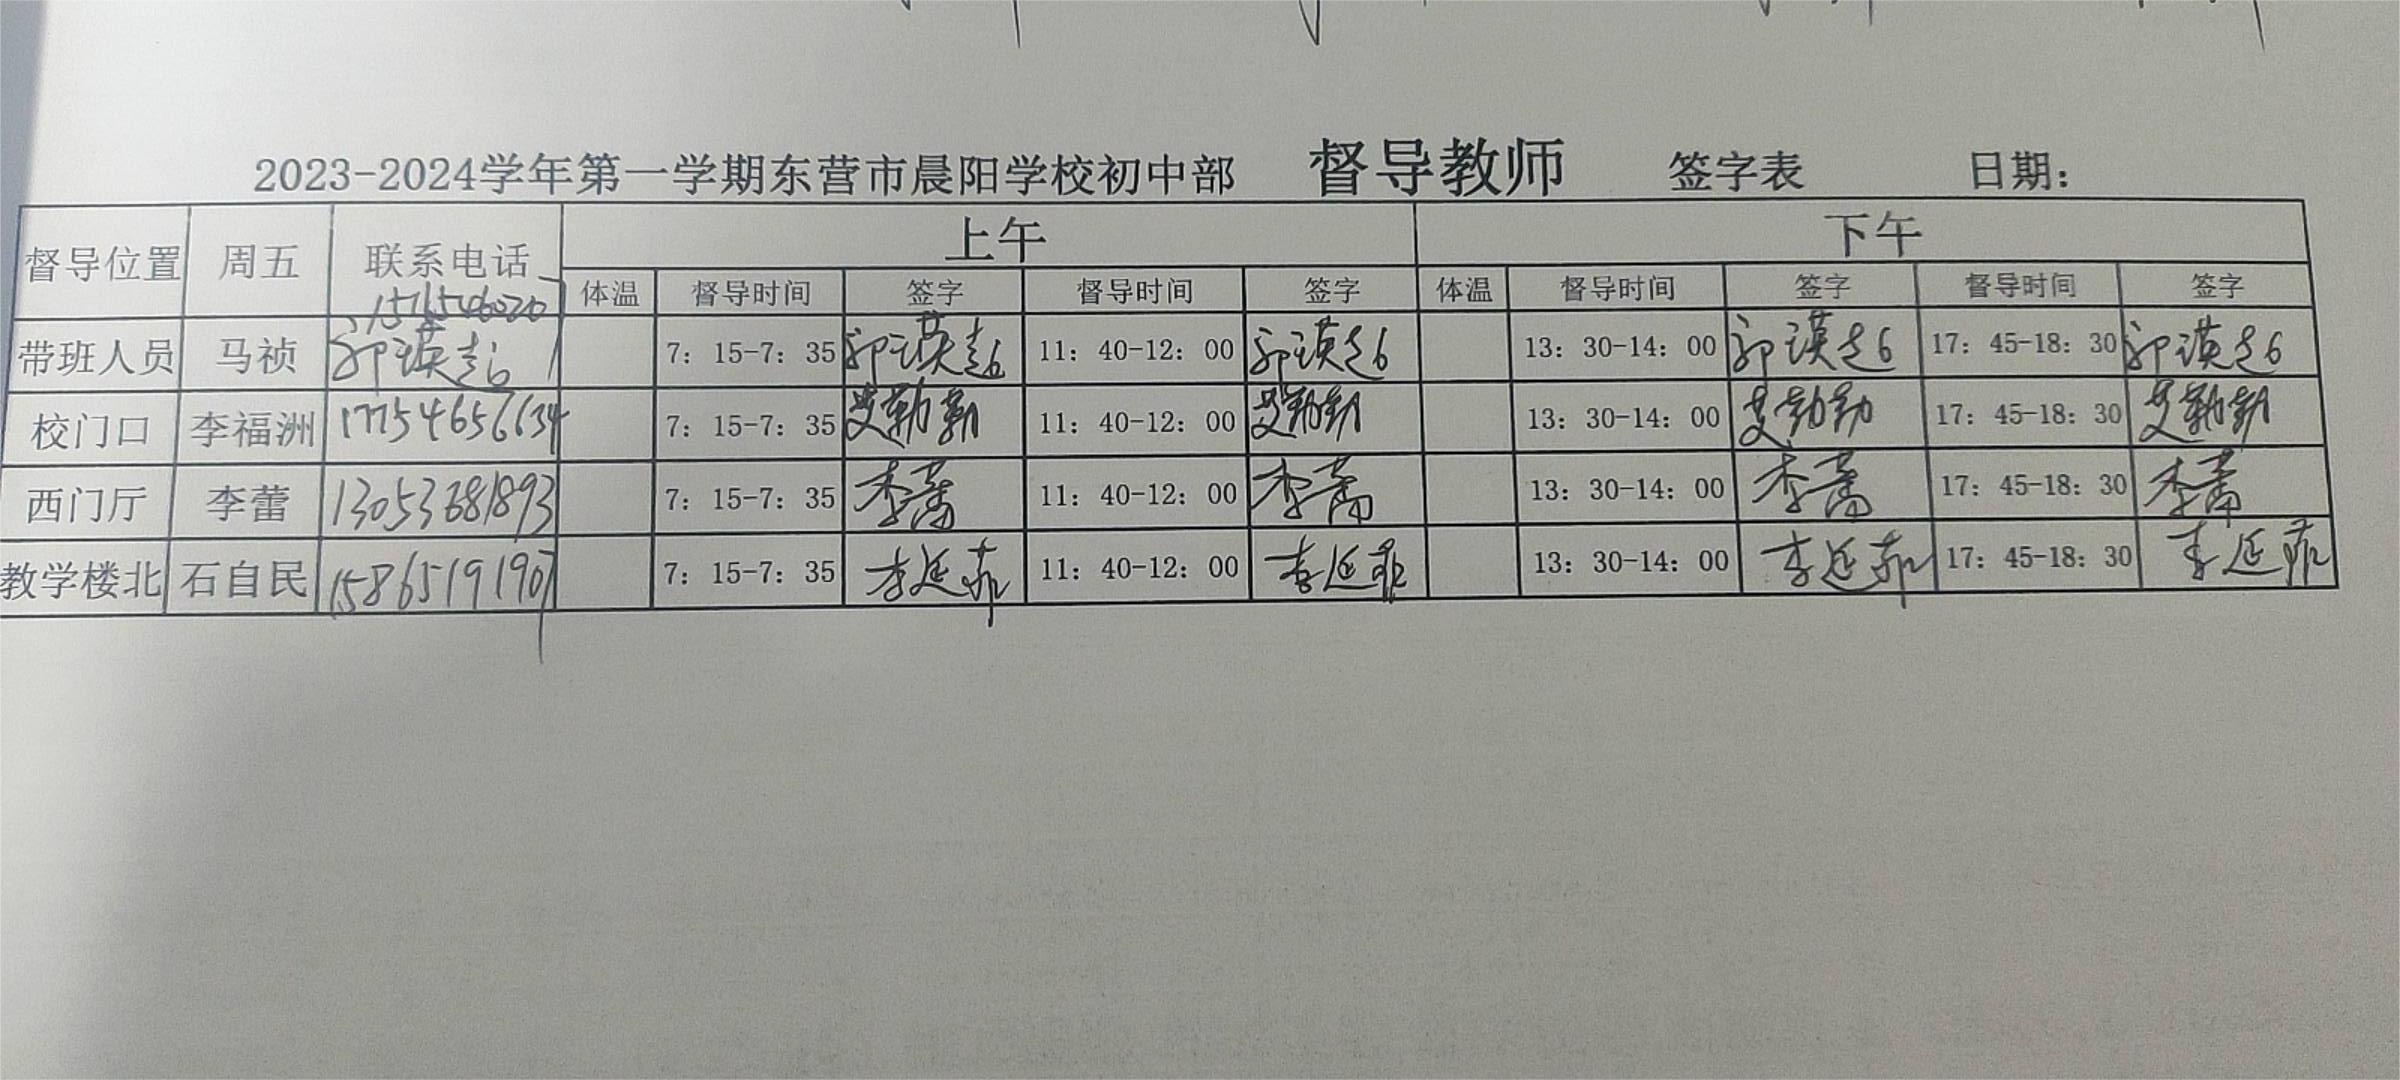 2023-2024学年第一学期东营市晨阳学校初中部 督导教师 签字表 日期：
督导位置 周五 联系电话 上午 下午
体温 督导时间 签字 督导时间 签字 体温 督导时间 签字 督导时间 签字
带班人员 马祯 郭瑛超 7：15-7：35 郭瑛超 11：40-12：00 郭瑛超 13：30-14：00 郭瑛超 17：45-18：30 郭瑛超
校门口 李福洲 17754656634 7：15-7：35 艾勤勤 11：40-12：00 艾勤勤 13：30-14：00 艾勤勤 17：45-18：30 艾勤勤
西门厅 李蕾 13053681893 7：15-7：35 李蕾 11：40-12：00 李蕾 13：30-14：00 李蕾 17：45-18：30 李蕾
教学楼北 石自民 15865191907 7：15-7：35 李延菲 11：40-12：00 李延菲 13：30-14：00 李延菲 17：45-18：30 李延菲